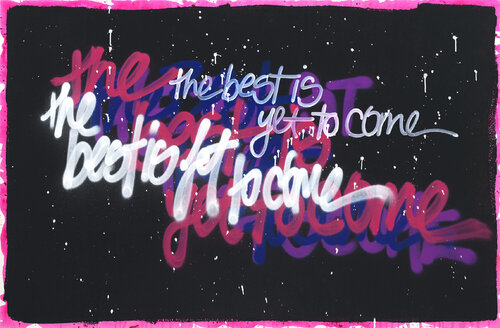 the best is
yet to come
the
best is yet to come
the
best is
yet to come